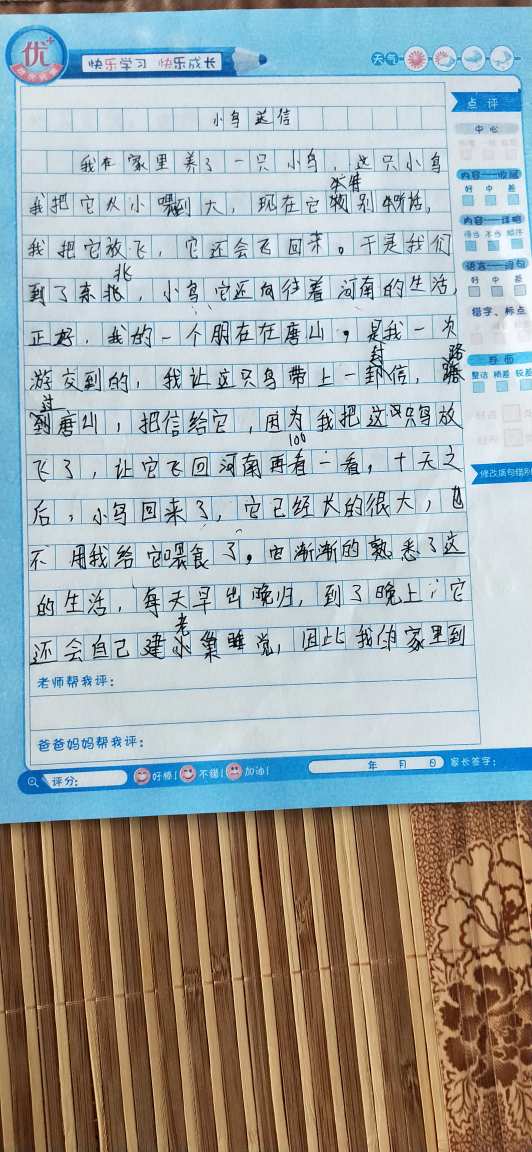 优+
快乐学习 快乐成长
天气
点评
小鸟送信
中心
我在家里养了一只小鸟，这只小鸟
内容——收尾
好 中 差
我把它从小喂到大，现在它特别听话，
内容——详略
得当 不当 顺序
我把它放飞，它还会飞回来。于是我们
语言——词句
好 中 差
北
到了东北，小鸟它还向往着河南的生活，
错字、标点
正好，我的一个朋在在唐山，是我一次
卷面
整洁 稍差 较差
封 路
游交到的，我让这只鸟带上一封信，路
过
到唐山，把信给它，因为我把这只鸟放
修改病句错别
100
飞了，让它飞回河南再看一看，十天之
后，小鸟回来了，它已经长的很大，也
不用我给它喂食了。由渐渐的熟悉了这
的生活，每天早出晚归，到了晚上，它
老
还会自己建小巢睡觉，因此我的家里到
老师帮我评：
爸爸妈妈帮我评：
评分： 好棒！ 不错！ 加油！ 年 月 日 家长签字：